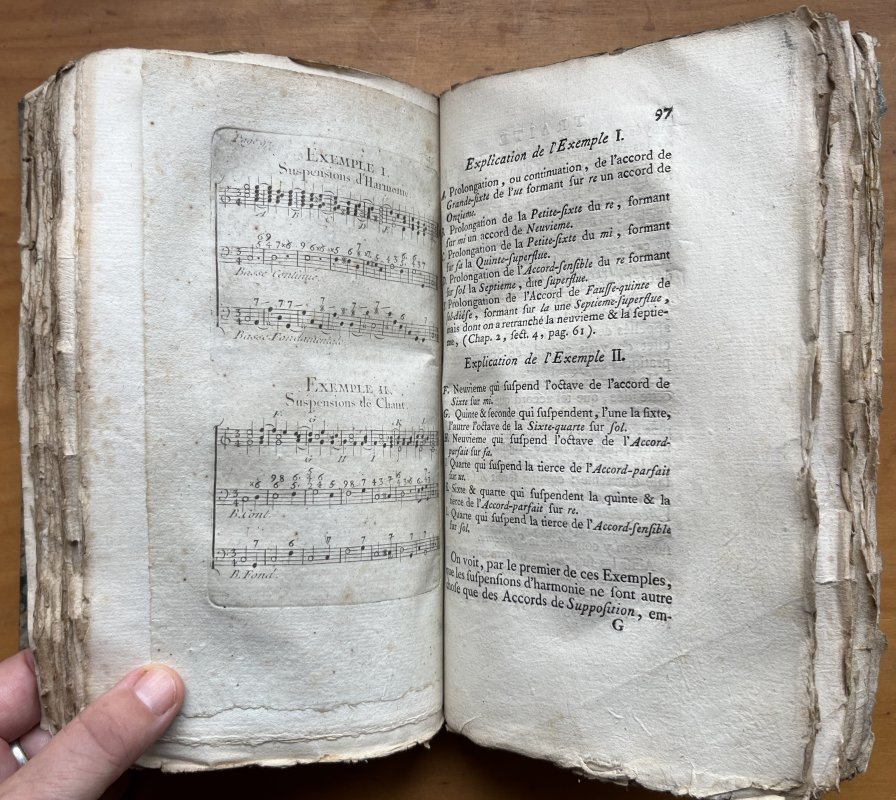 Page 97.
EXEMPLE I.
Suspensions d'Harmonie
A B C D E
69
5 4 7 ×6 9 6 ×6 ×5 6 7
Basse Continue.
7 7 7 7 7 7
Basse Fondamentale.
EXEMPLE II.
Suspensions de Chant
F G K
G H I
×6 9 8 6 5 9 8 7 4 3
B. Cont.
7 6 7 7 7 7
B. Fond.
97
Explication de l'Exemple I.
A. Prolongation, ou continuation, de l'accord de
Grande-ſixte de l'ut formant ſur re un accord de
Onzieme.
Prolongation de la Petite-ſixte du re, formant
ſur mi un accord de Neuvieme.
Prolongation de la Petite-ſixte du mi, formant
ſur fa la Quinte-ſuperflue.
Prolongation de l'Accord-ſenſible du re formant
ſur ſol la Septieme, dite ſuperflue.
Prolongation de l'Accord de Fauſſe-quinte de
ſol-dièſe, formant ſur la une Septieme-ſuperflue,
mais dont on a retranché la neuvieme & la ſeptie-
me, (Chap. 2, ſect. 4, pag. 61).
Explication de l'Exemple II.
F. Neuvieme qui ſuſpend l'octave de l'accord de
Sixte ſur mi.
G. Quinte & ſeconde qui ſuſpendent, l'une la ſixte,
l'autre l'octave de la Sixte-quarte ſur ſol.
H. Neuvieme qui ſuſpend l'octave de l'Accord-
parfait ſur fa.
Quarte qui ſuſpend la tierce de l'Accord-parfait
ſur ut.
K. Sixte & quarte qui ſuſpendent la quinte & la
tierce de l'Accord-parfait ſur re.
Quarte qui ſuſpend la tierce de l'Accord-ſenſible
ſur ſol.
On voit, par le premier de ces Exemples,
que les ſuſpenſions d'harmonie ne ſont autre
choſe que des Accords de Suppoſition, em-
G